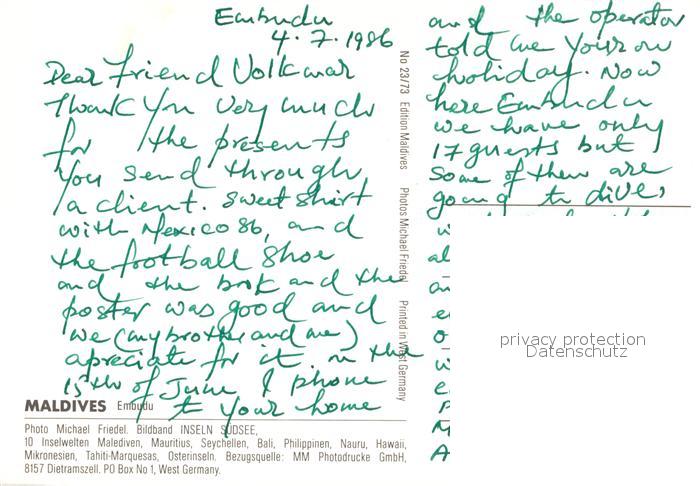 Embudu
4.7.1986
Dear friend Volkmar
Thank you very much
for the presents
you send through
a client. Sweet shirt
with Mexico 86, and
the football shoe
and the book and the
poster was good and
we (my brother and me)
apreciate for it. on the
15th of June I phone
to your home
and the operator
told me your on
holiday. Now
here Embudu
we have only
17 guests but
some of them are
going to dive,
No 23/73 Edition Maldives Photos Michael Friedel Printed in West Germany
MALDIVES Embudu
Photo Michael Friedel. Bildband INSELN SÜDSEE,
10 Inselwelten Malediven, Mauritius, Seychellen, Bali, Philippinen, Nauru, Hawaii,
Mikronesien, Tahiti-Marquesas, Osterinseln. Bezugsquelle: MM Photodrucke GmbH,
8157 Dietramszell. PO Box No 1, West Germany.
privacy protection
Datenschutz